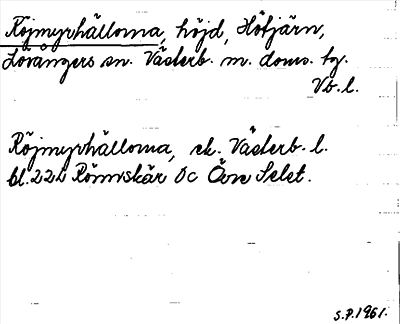 Röjmyrhällorna, höjd, Hötjärn,
Lövångers sn. Västerb. m. doms. tg.
Vb. l.
Röjmyrhällorna, ek. Västerb. l.
bl. 22L Rönnskär Öc Övre Selet.
S.P. 1961.